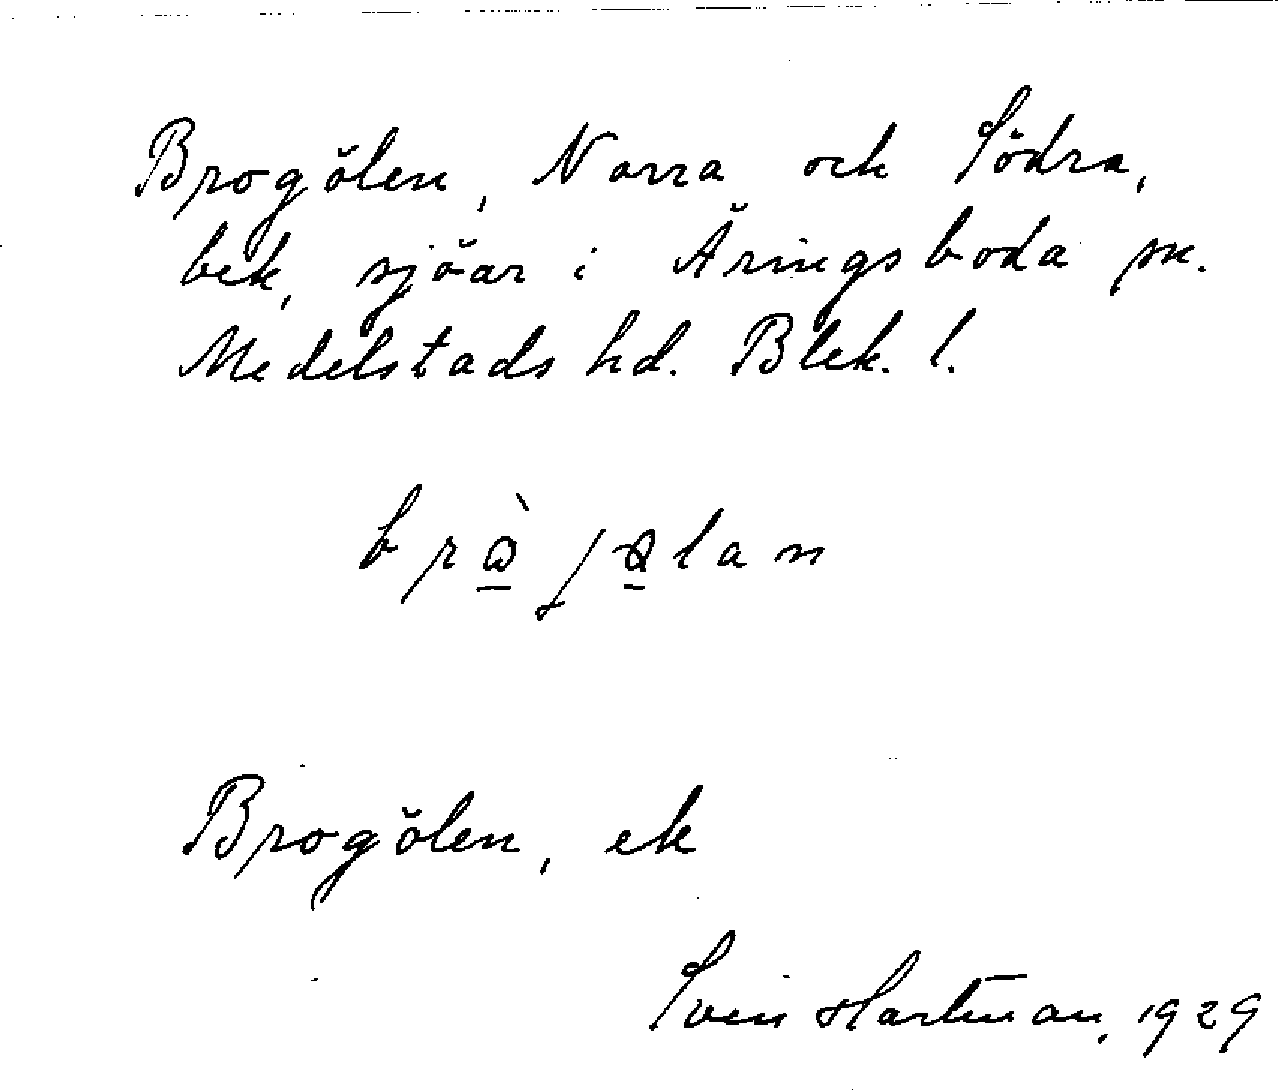 Brogölen, Norra och Södra,
bek, sjöar i Äringsboda sn.
Medelstads hd. Blek. l.
Brogölen, ek
Sven Hartman, 1929